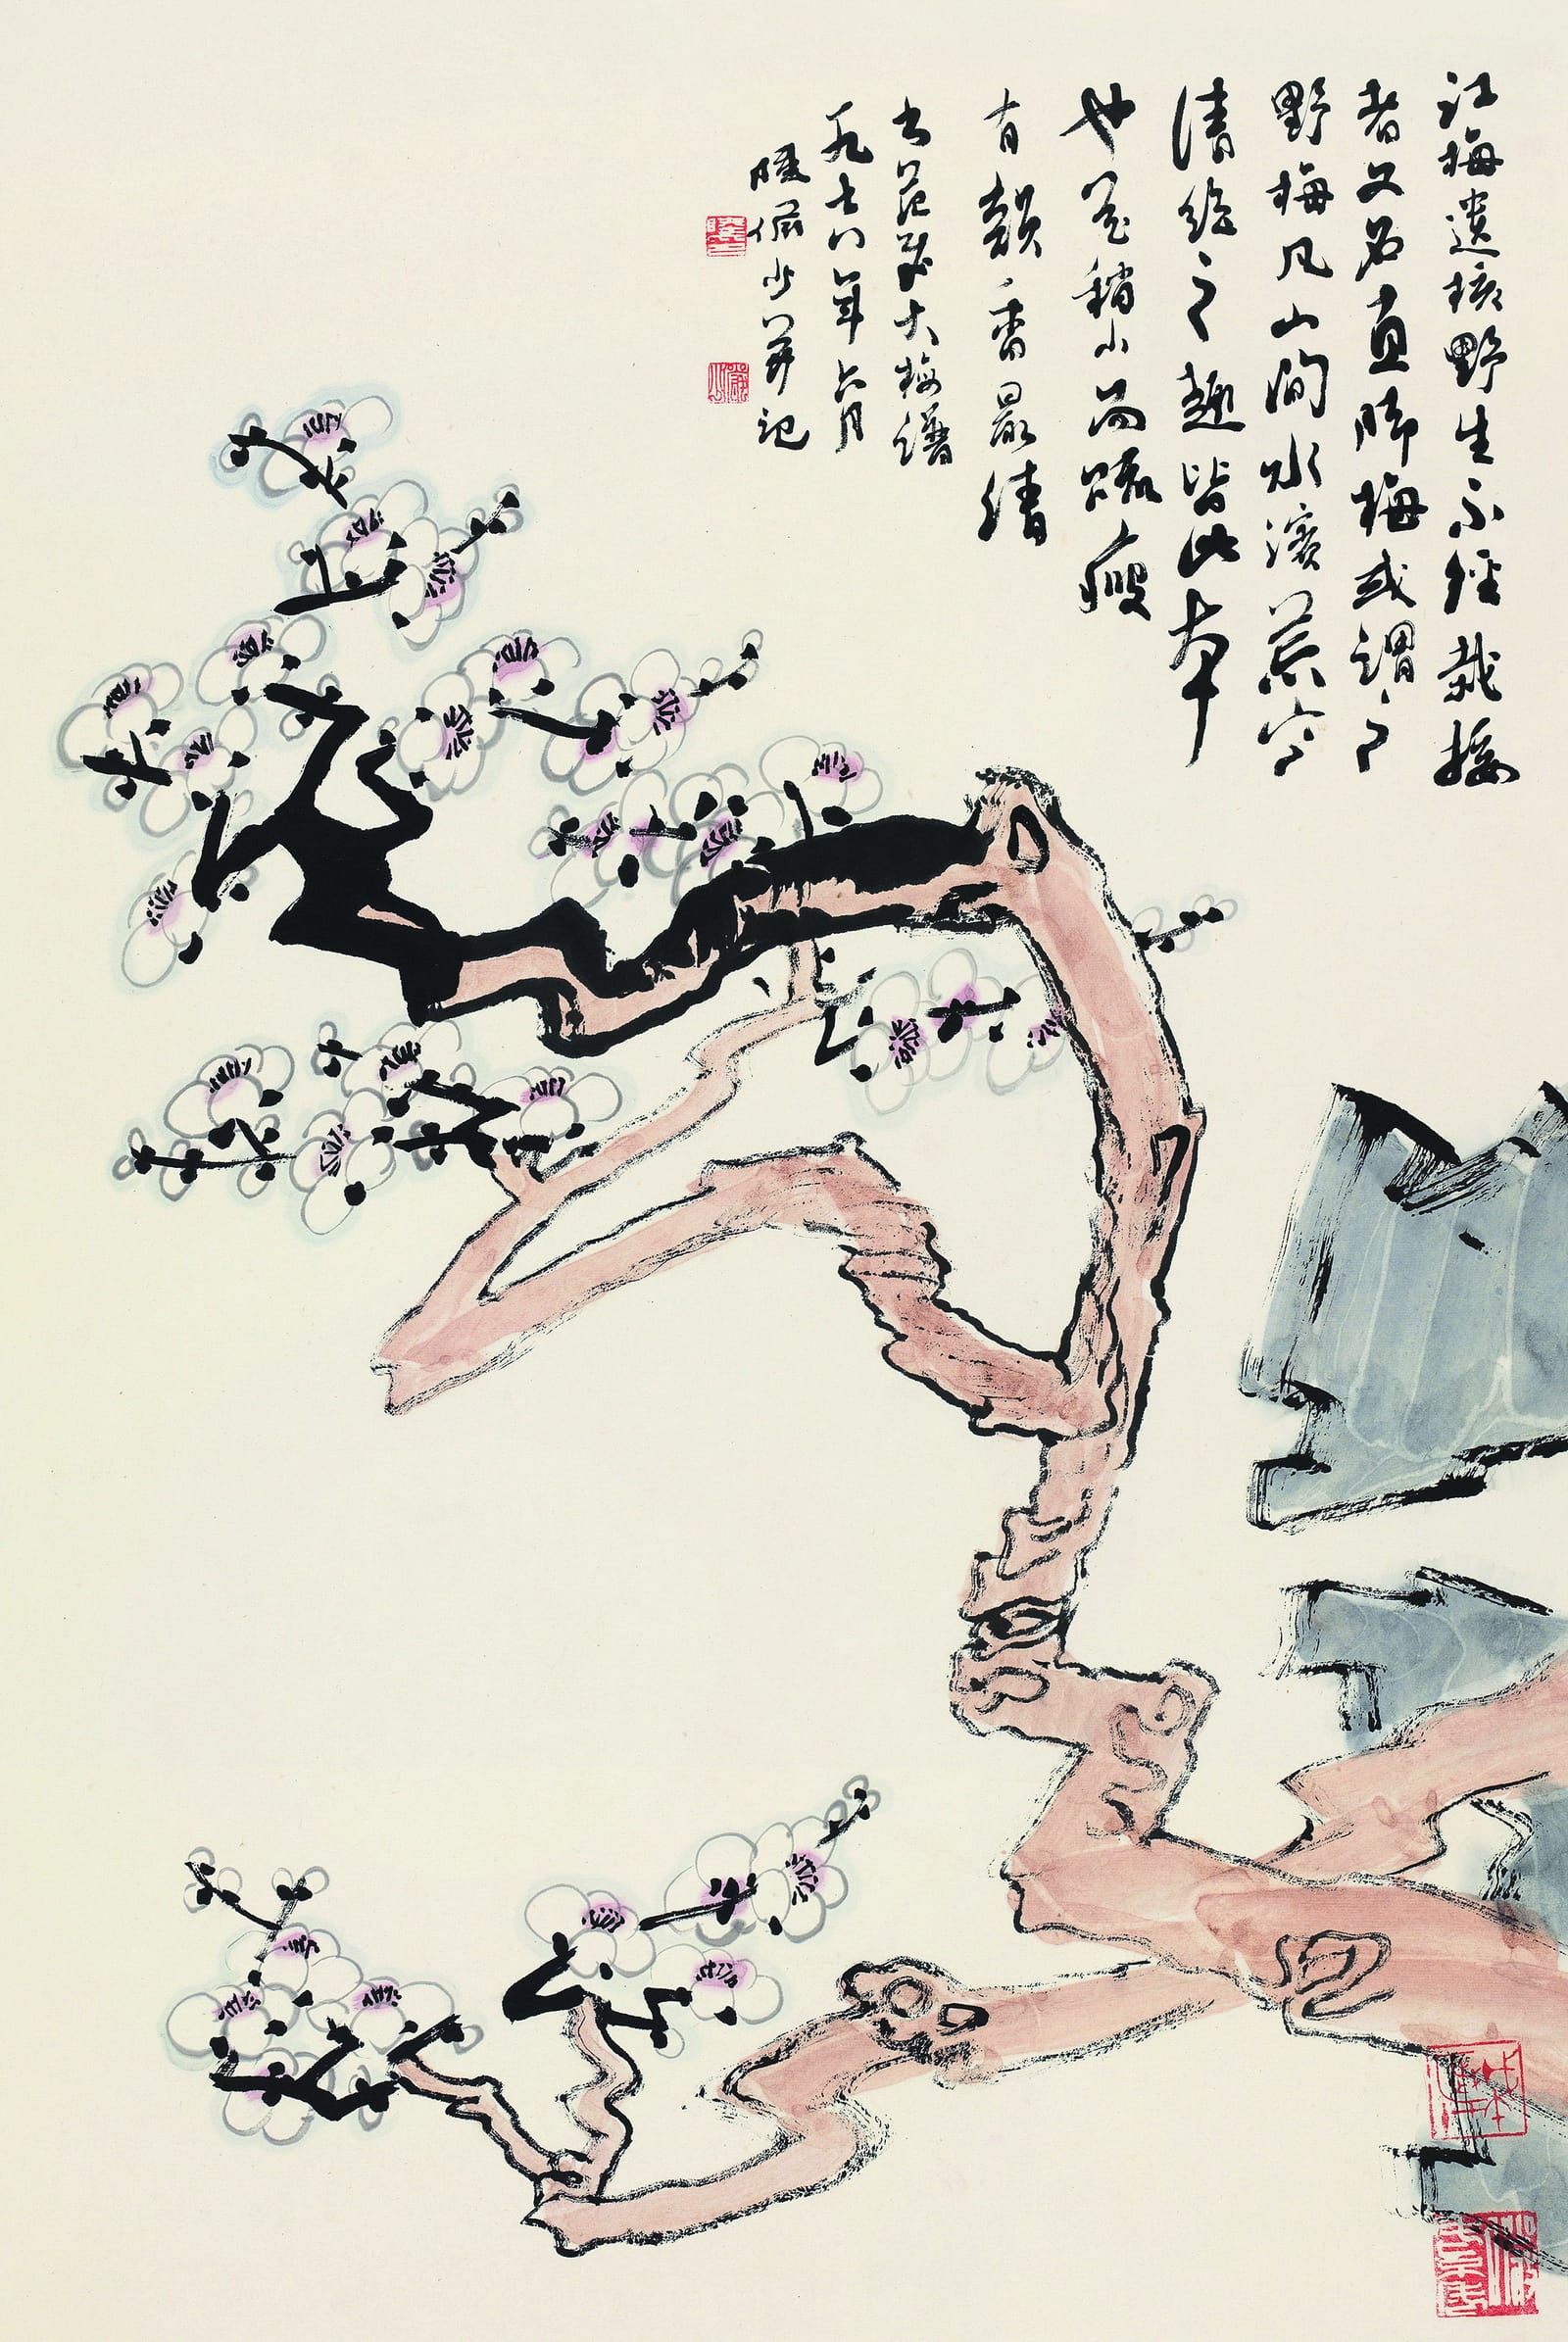 江梅遺核野生不經栽接
者又名直脚梅或謂之
野梅凡山間水濱荒寒
清絕之趣皆此本
也花稍小而疏瘦
有韻香最清
范成大梅譜
一九七八年六月
陸儼少并記